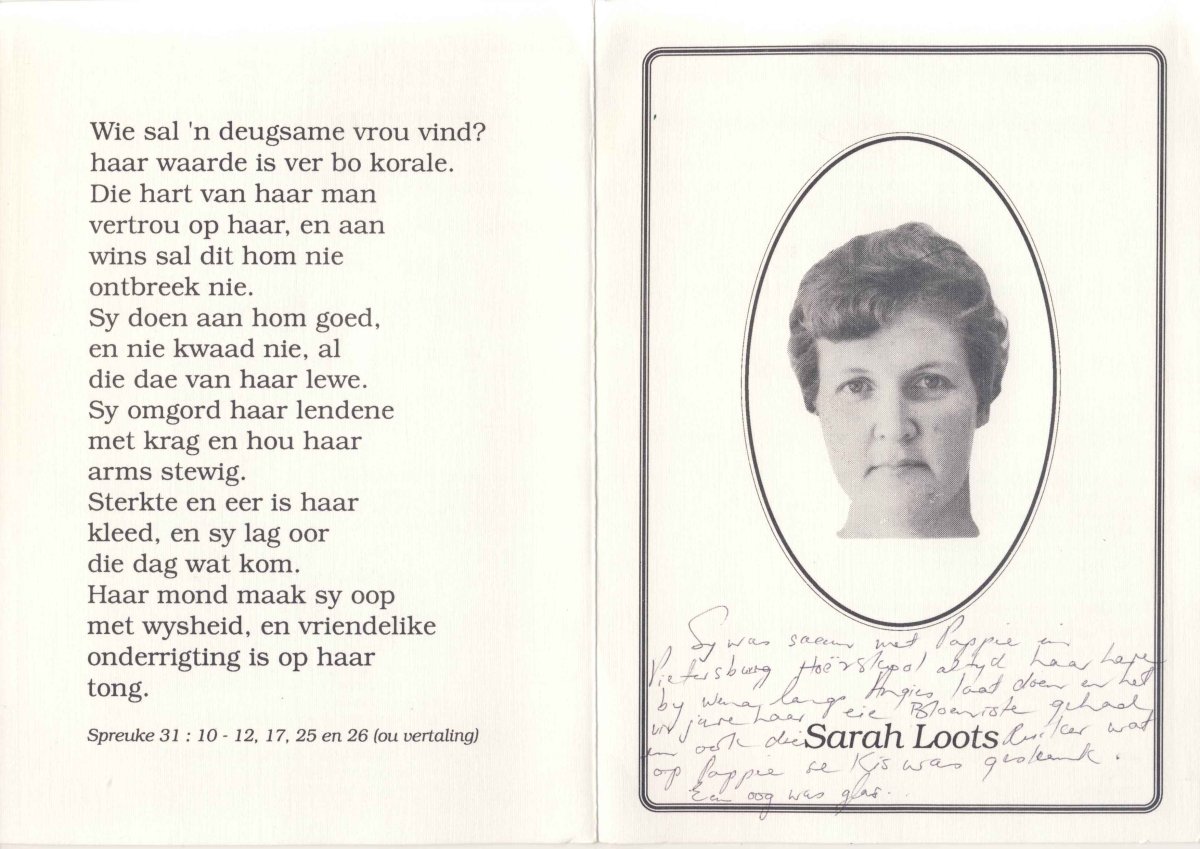 Wie sal 'n deugsame vrou vind?
haar waarde is ver bo korale.
Die hart van haar man
vertrou op haar, en aan
wins sal dit hom nie
ontbreek nie.
Sy doen aan hom goed,
en nie kwaad nie, al
die dae van haar lewe.
Sy omgord haar lendene
met krag en hou haar
arms stewig.
Sterkte en eer is haar
kleed, en sy lag oor
die dag wat kom.
Haar mond maak sy oop
met wysheid, en vriendelike
onderrigting is op haar
tong.
Spreuke 31 : 10 - 12, 17, 25 en 26 (ou vertaling)
Sy was saam met Pappie in
Pietersburg Hoërskool altyd haar hare
by langs Angies laat doen en het
vir jare haar eie Bloemiste gehad
en ook die Ruiker wat
Sarah Loots
op Pappie se Kis was geskenk.
Een oog was glas.